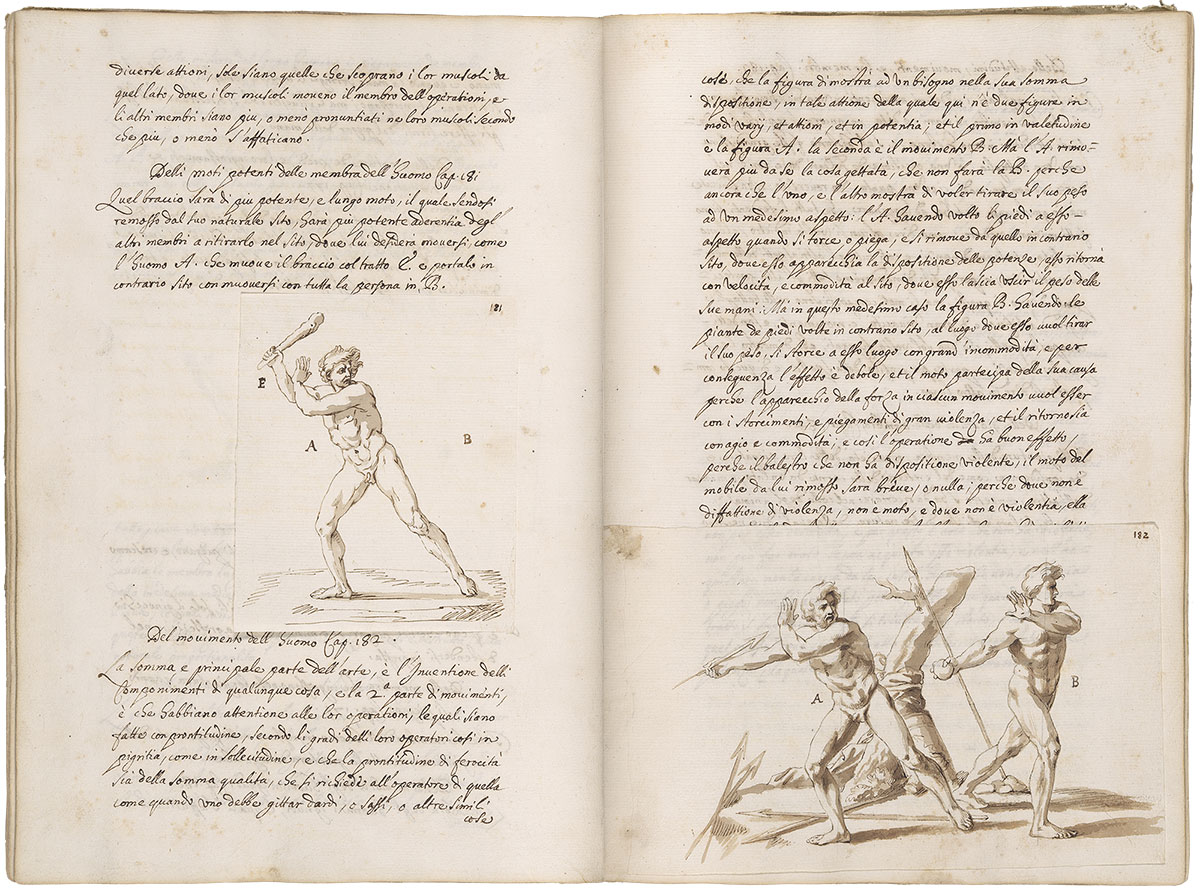 diverse attioni, sole siano quelle che scoprano i lor muscoli da
quel lato, dove i lor muscoli moveno il membro dell'operationi, e
li altri membri siano piu, o menò pronuntiati ne loro muscoli secondo
che piu, o menò s'affaticano.
Delli moti potenti delle membra dell'huomo Cap. 181
Quel braccio sarà di più potente, e lungo moto, il quale sendosi
remosso dal suo naturale sito, harà più potente aderentia degl'
altri membri a ritirarlo nel sito, dove lui desidera moversi, come
l'huomo A. che muove il braccio col tratto E. e portalo in
contrario sito con muoversi con tutta la persona in B.
181
E
A
B
Del movimento dell'huomo Cap. 182.
La somma e principale parte dell'arte, è l'inventione delli
Componimenti di qualunque cosa, e la 2.a parte di movimenti,
è che habbiano attentione alle lor operationi, le quali siano
fatte con prontitudine, secondo li gradi delli loro operatori cosi in
pigritia, come in sollecitudine, e che la prontitudine di ferocità
sia della somma qualità, che si richiede all'operatore di quella
come quando uno debbe gittar dardi, o sassi, o altre simili
cose
cose, che la figura dimostra ad un bisogno nella sua somma
dispositione, in tale attione della quale qui n'è due figure in
modi vary, et attioni, et in potentia; et il primo in valetudine
è la figura A. la seconda è il movimento B. Mà l'A. rimo-
verà più da se la cosa gettata, che non farà la B. perche
ancora che l'uno, e l'altro mostrà di voler tirare il suo peso
ad un medesimo aspetto: l'A. havendo volto li piedi a esso
aspetto quando si torce o piega, e si rimove da quello in contrario
sito, dove esso apparecchia la dispositione delle potenze, esso ritorna
con velocità, e commodità al sito, dove esso lascia uscir il peso delle
sue mani: Mà in questo medesimo caso la figura B. havendo le
piante de piedi volte in contrario sito, al luogo dove esso vuol tirar
il suo peso, si storce a esso luogo con grand'incommodità, e per
conseguenza l'effetto è debole, et il moto partecipa della sua causa
perche l'apparecchio della forza in ciascun movimento vuol esser
con i storcimenti, e piegamenti di gran violenza, et il ritorno sia
con agio e commodità; e cosi l'operatione ha buon effetto,
perche il balestro che non hà dispositione violente, il moto del
mobile da lui rimosso sarà breve, o nulla, perche dove non è
diffattione di violenza, non è moto, e dove non è violentia, ella
182
A
B